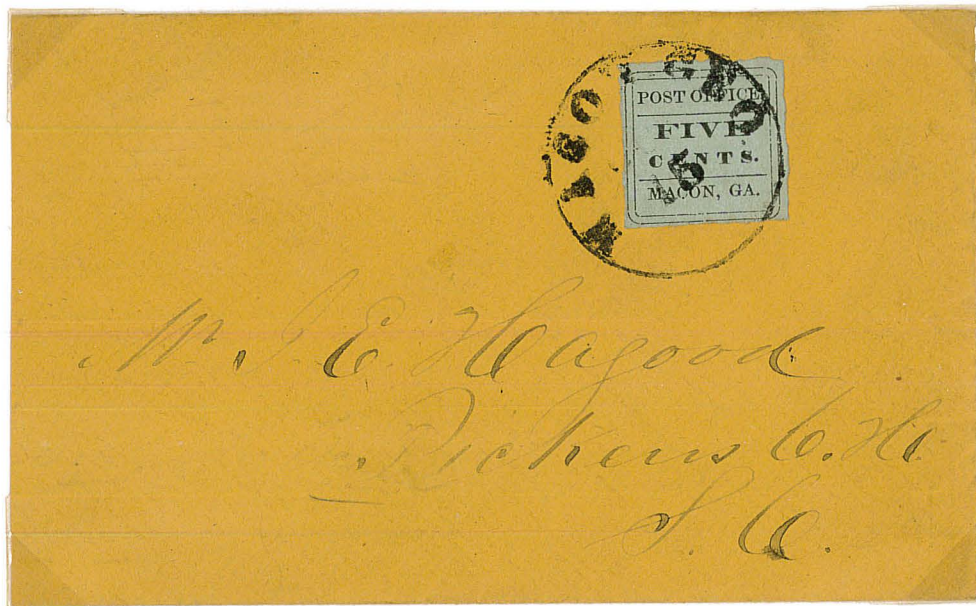 POST OFFICE
FIVE
CENTS.
MACON, GA.
5
Mr. J. E. Hagood
Pickens C. H.
S. C.